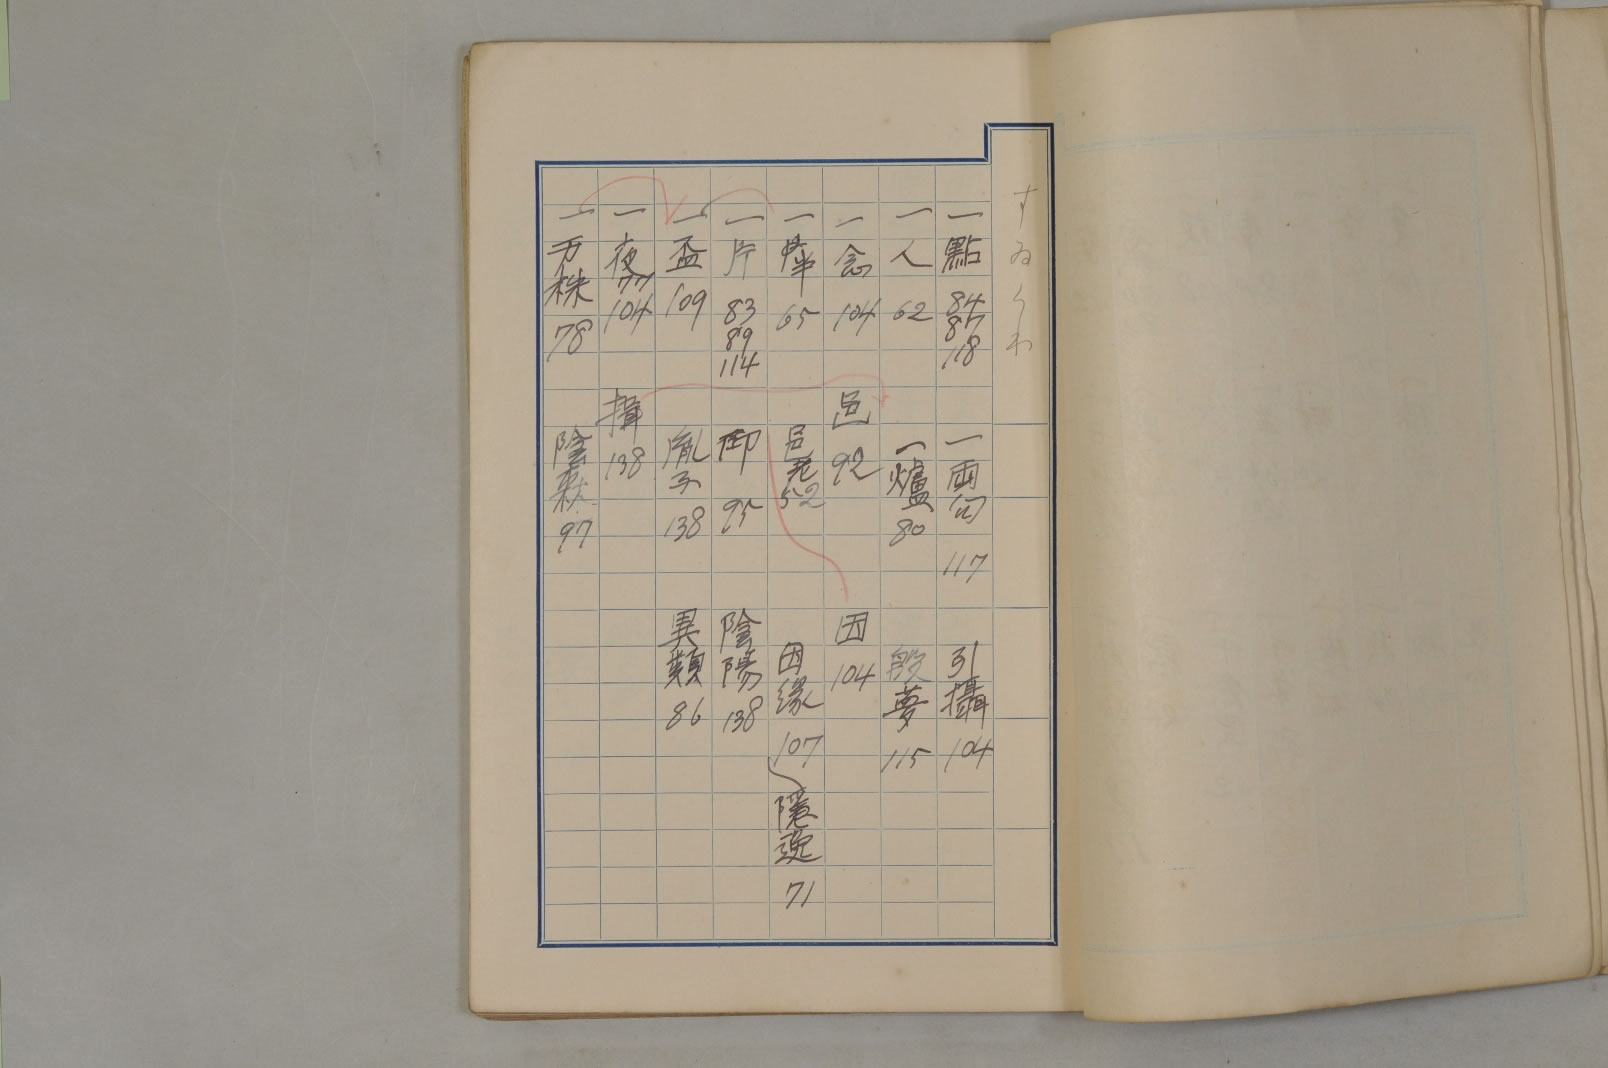 一點 84 87 118
一人 62
一念 104
65
一片 83 89 114
一盃 109
一夜 77 104
一万株 78
一両句 117
一爐 80
邑 92
邑老 52
御 95
胤子 138
揖 138
陰森 97
引攝 104
殷夢 115
因 104
因縁 107
隠逸 71
陰陽 138
異類 86